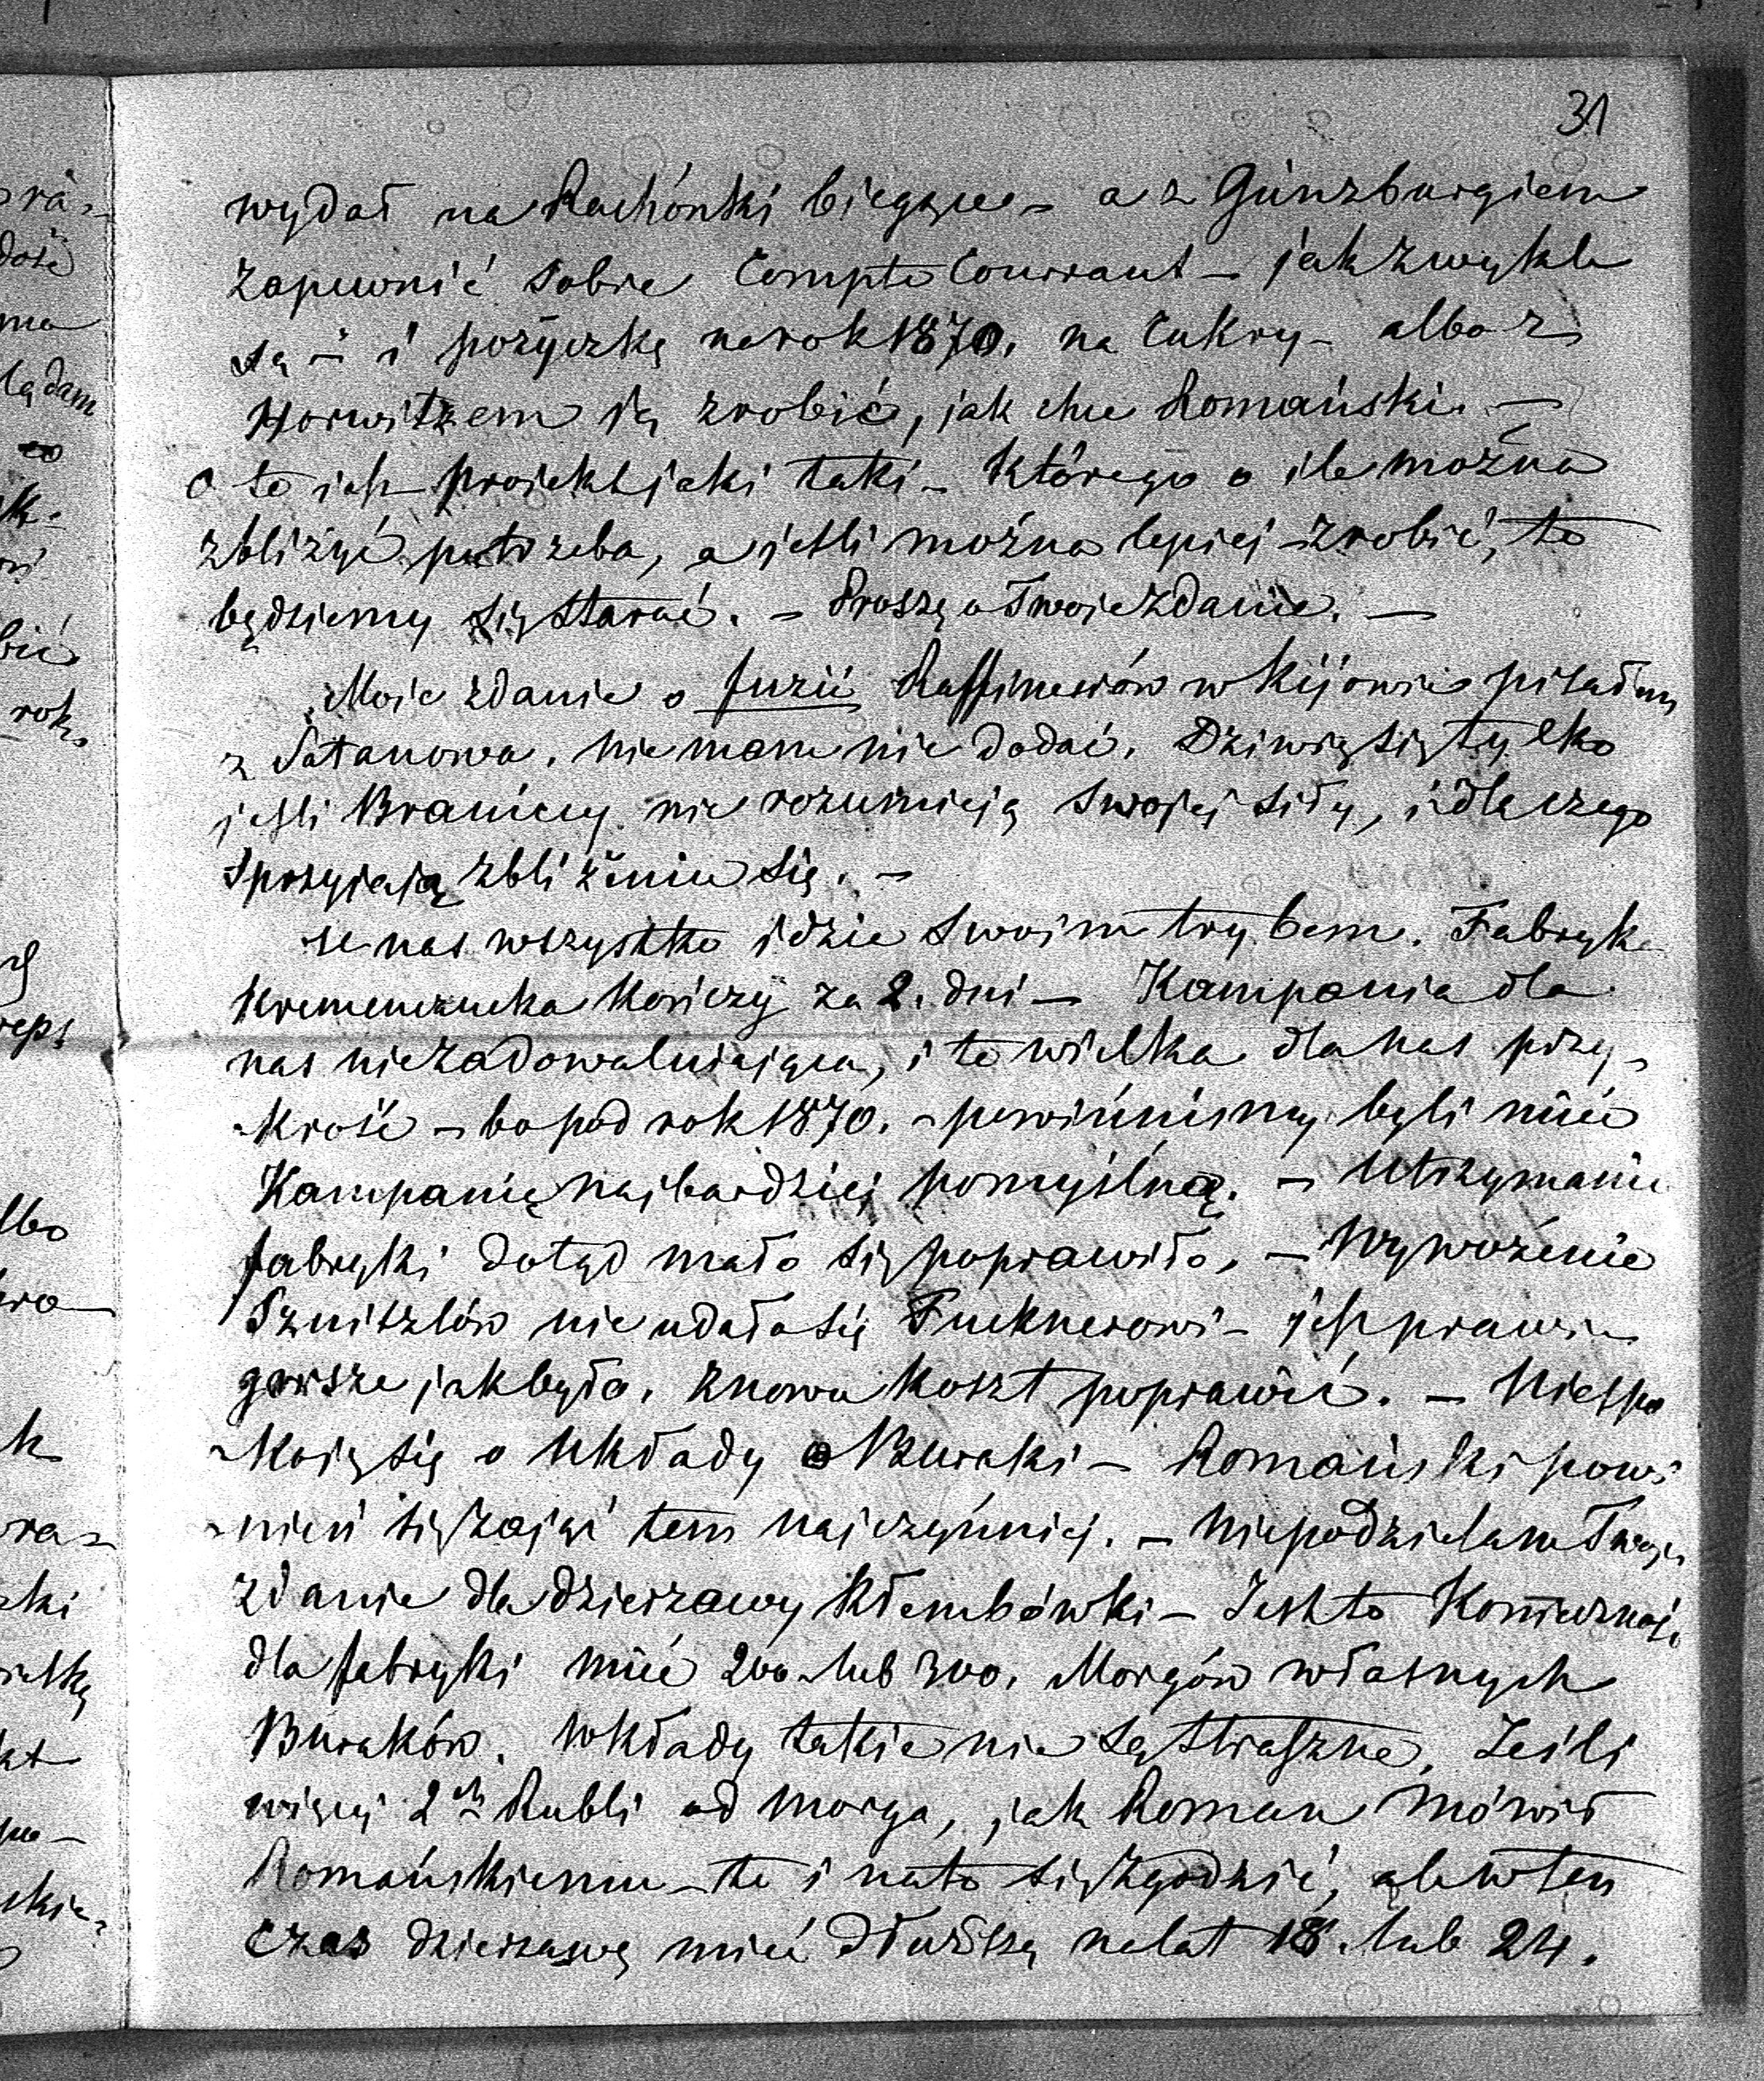 31
wydał na Rachónki bieżące – a z Günzburgiem
zapewnić sobie Compte Courrant – jak zwykle
są – i pożyczkę na rok 1870. na Cukry – albo z
Horwitzem ją zrobić, jak chce Romański. —
O to jest projekt jaki taki – którego o ile można
zbliżyć potrzeba, a jeśli można lepiej zrobić, to
będziemy się starać. – Proszę o Twoje zdanie. —
Moie zdanie o fuzii Raffinerów w Kijowie pisałem
z Satanowa. nie mam nic dodać. Dziwię się tylko
jeśli Braniccy nie rozumieją swojej siły, i dla czego
sprzyjają zbliżeniu się. –
U nas wszystko idzie swoim trybem. Fabryka
Kremenczucka kończy za 2. dni – Kampania dla
nas niezadowalniająca, i to wielka dla nas przy-
krość – bo pod rok 1870. – powinniśmy byli mieć
Kampanię najbardziej pomyślną. – Utrzymanie
fabryki dotąd mało się poprawiło. – Wywożenie
Sznitzlów nie udało się Fucknerowi – jest prawie
gorsze jak było. znowu koszt poprawić. – Niespo
koję się o Układy o Buraki – Romański powi
nien się zająć tem najczynniej. – Niepodzielam Twego
zdanie dla dzierzawy Kłembówki – Jest to Konieczność
dla fabryki mieć 200 lub 300. Morgów własnych
Buraków. Wkłady takie nie są straszne. Jeśli
więcej 2ch Rubli od morga, jak Roman mówił
Romańskiemu – to i na to się zgodzić, ale w ten
czas dzierzawę mieć dłuższą na lat 18. lub 24.